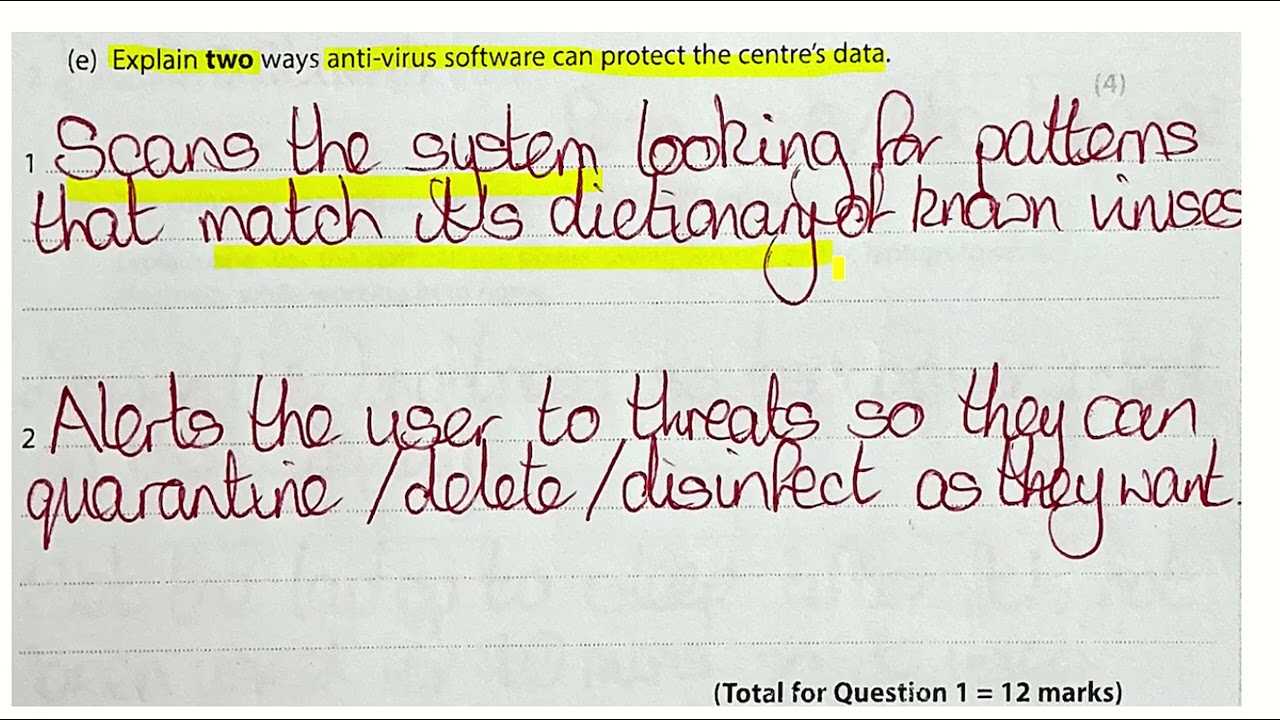 (e) Explain two ways anti-virus software can protect the centre's data.
(4)
1 Scans the system looking for patterns
that match it's dictionary of known viruses
2 Alerts the user to threats so they can
quarantine /delete/disinfect as they want.
(Total for Question 1 = 12 marks)